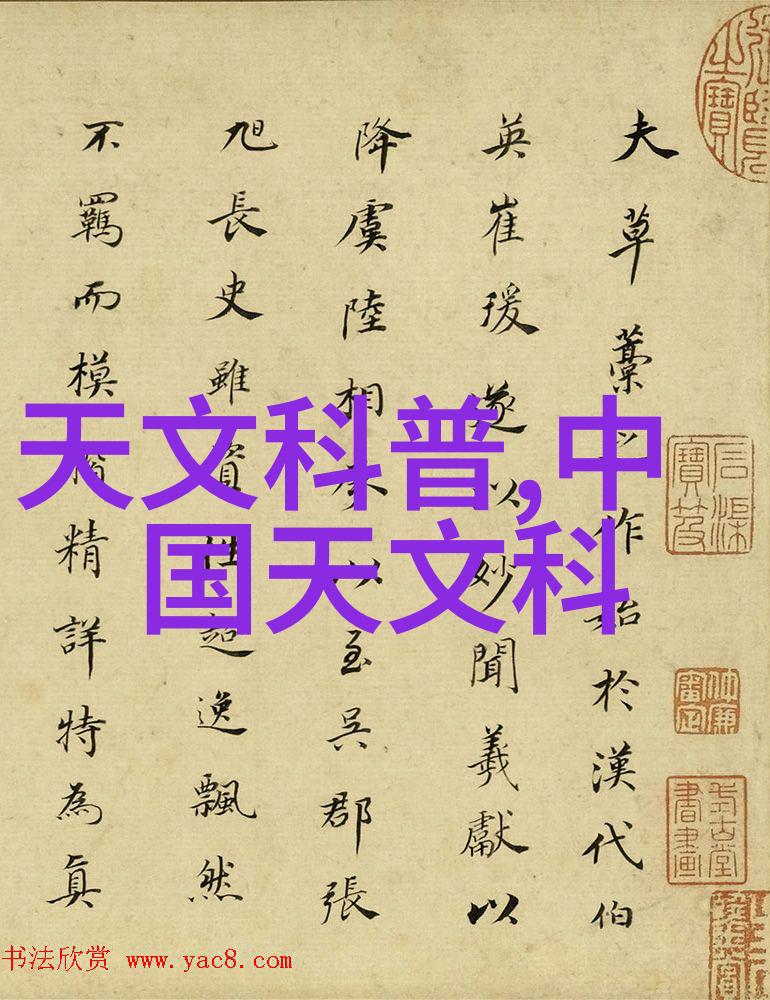 夫草藁之作始於漢代伯
英崔瑗遂以妙聞羲獻以
降虞陸相承以至吳郡張
旭長史雖資性超逸飄然
不羈而模楷精詳特為真
天文科普,中
国天文科
石渠寶笈
书法欣赏 www.yac8.com